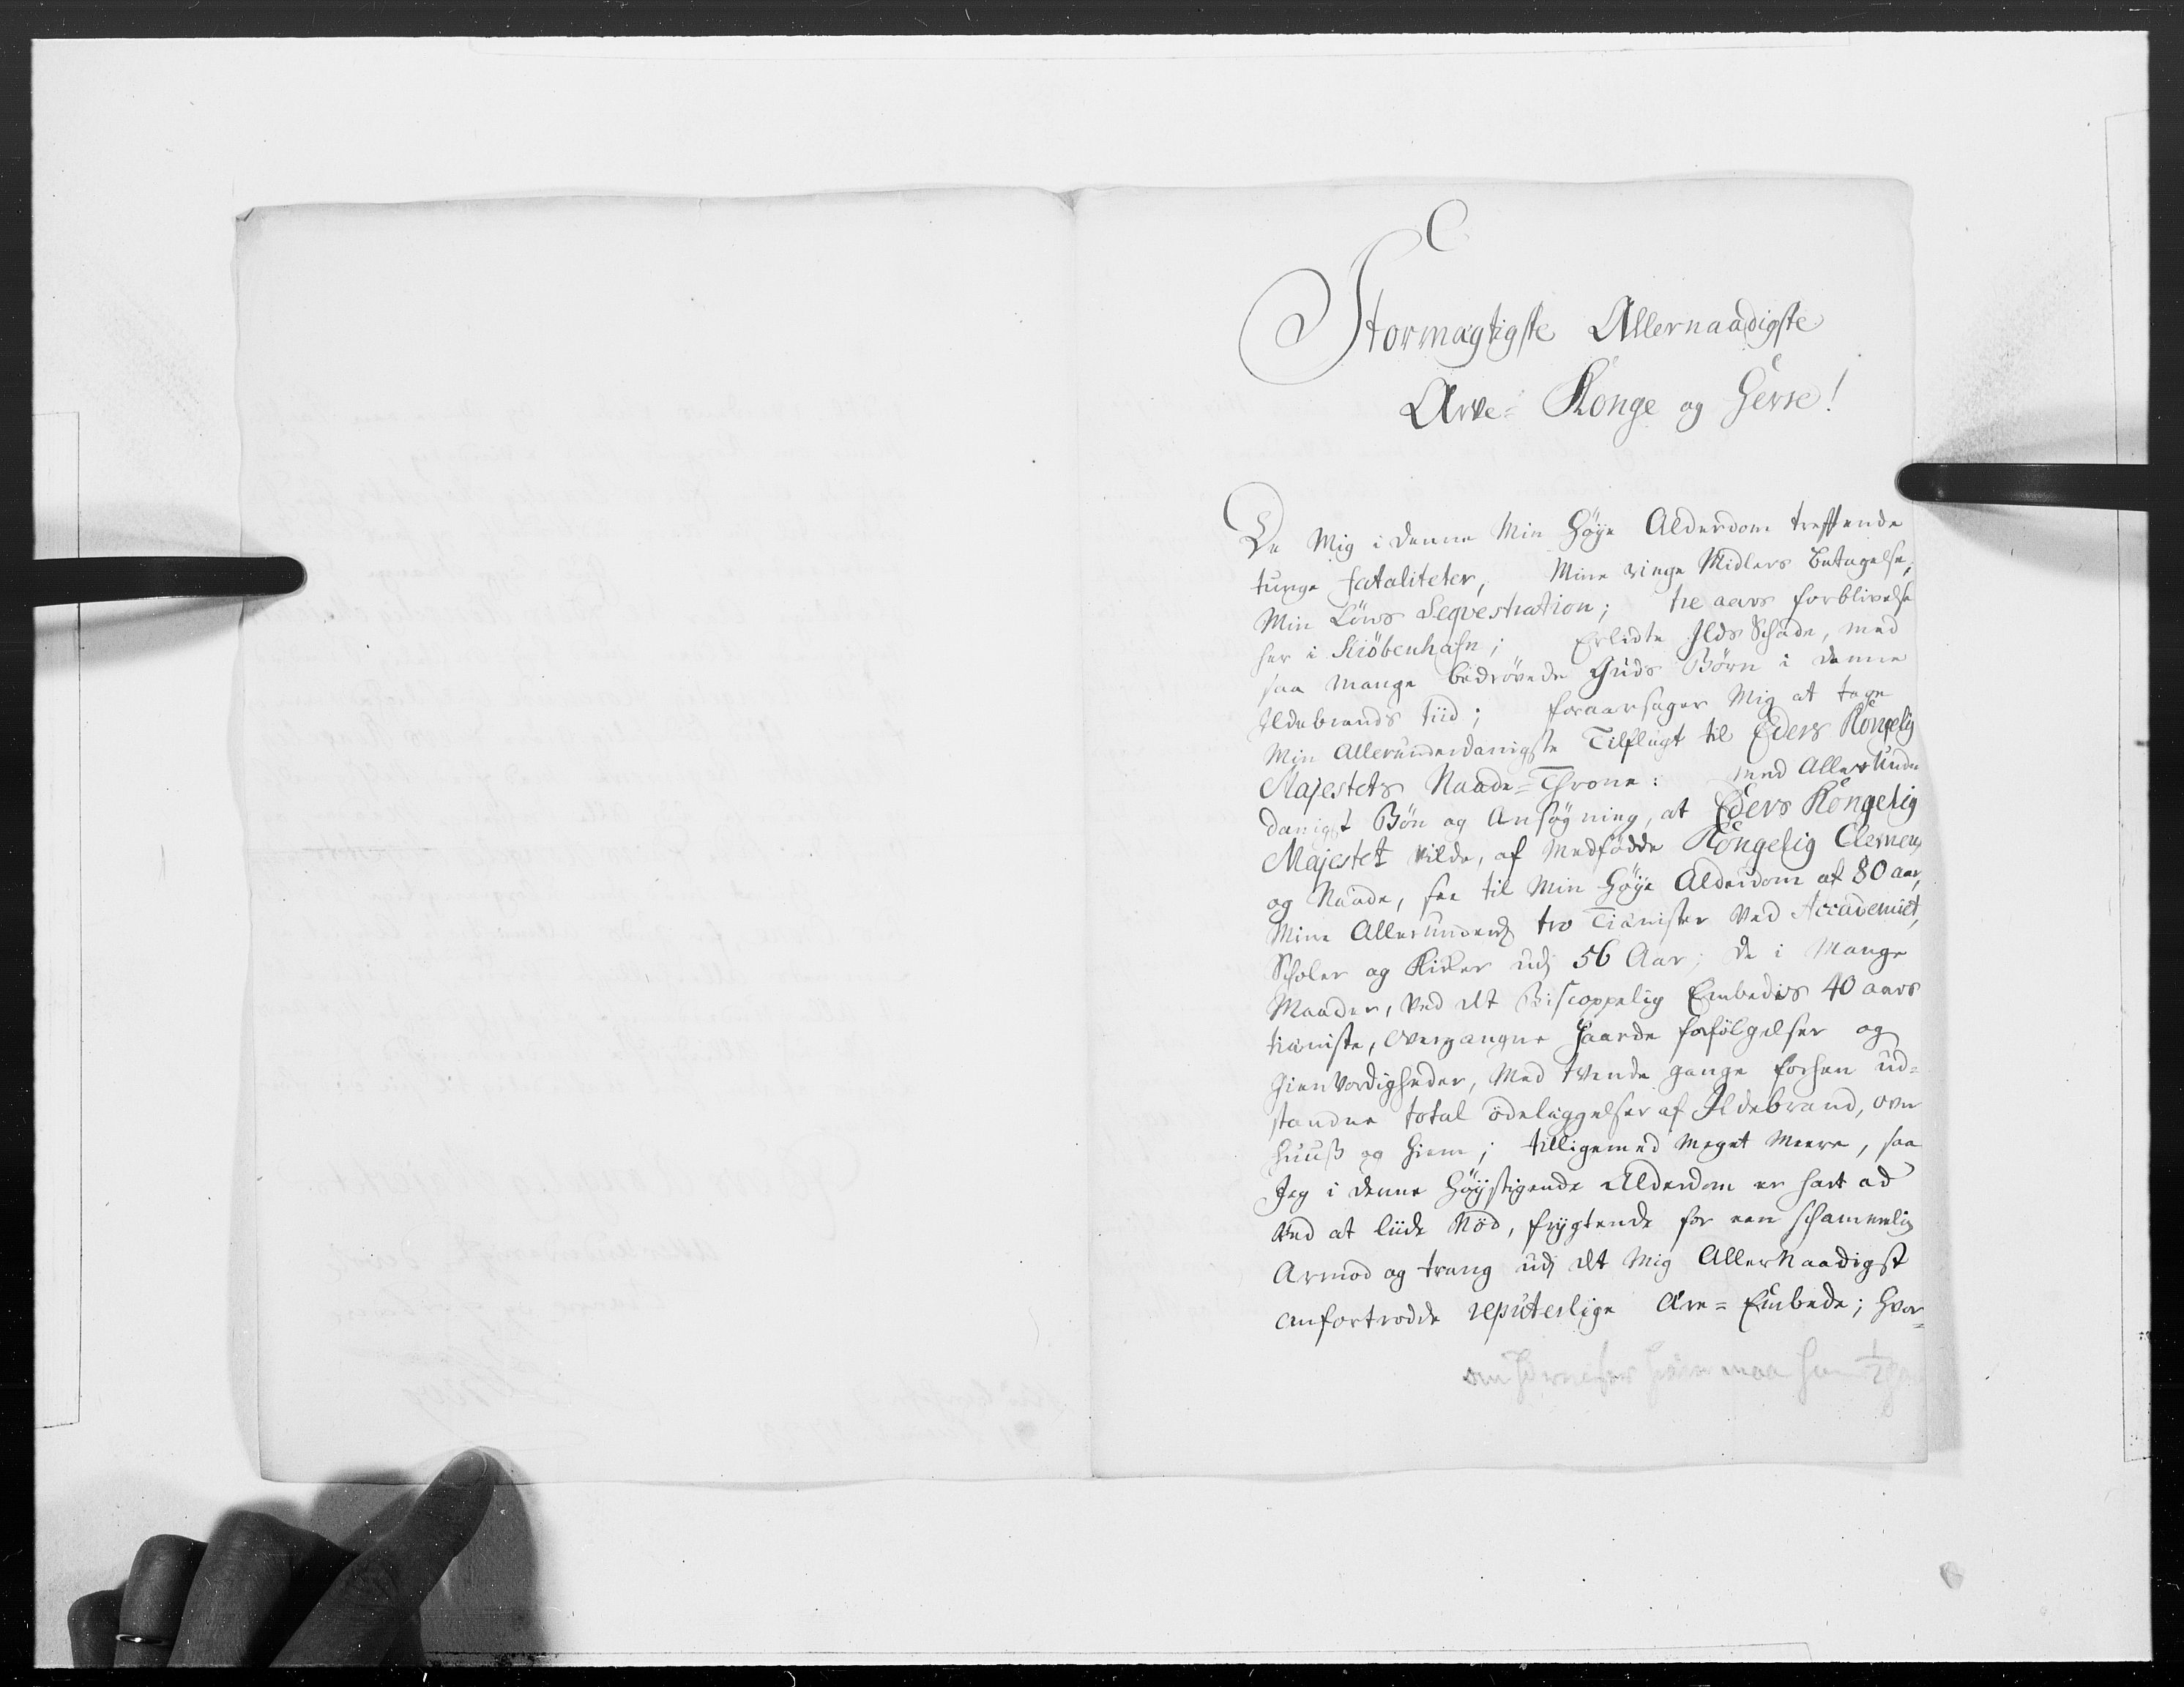 Stormægtigste Allernaadigste
Arve= Konge og Herre!
De Mig i denne Min Høye Alderdom treffende
tunge fataliteter, Mine ringe Midlers betagelse,
Min Löns Seqvestration; tre aars forblivelse
her i Kiöbenhafn; Erlidte Ilds Schade, med
saa mange bedrövede Guds Börn i denne
Ildebrands tiid; foraarsager Mig at tage
Min Allerunderdanigste Tilflugt til Eders Kongelig
Majestets Naade=Throne: med Allerunder
danigst Bön og Ansögning, at Eders Kongelig
Majestet vilde, af Medfødde Kongelig Clemence
og Naade, see til Min Høye Alderdom af 80 aar,
Mine Allerunderd tro Tienister ved Accademiet,
Scholer og Kirker udj 56 Aar; De i Mange
Maader, ved det Biscoppelig Embedes 40 aars
tieniste, overgangne haarde forfölgelser og
Gienvordigheder, Med tvende gange forhen ud=
standne total ödeleggelser af Ildebrand, over
Huuß og Hiem; tilligemed meget meere, saa
Jeg i denne Höystigende Alderdom er hart ad
ved at liide Nöd, frygtende for een schammelig
Armod og trang udj det Mig AllerNaadigst
anfortrodde reputerlige Ære= Embede; hvor=